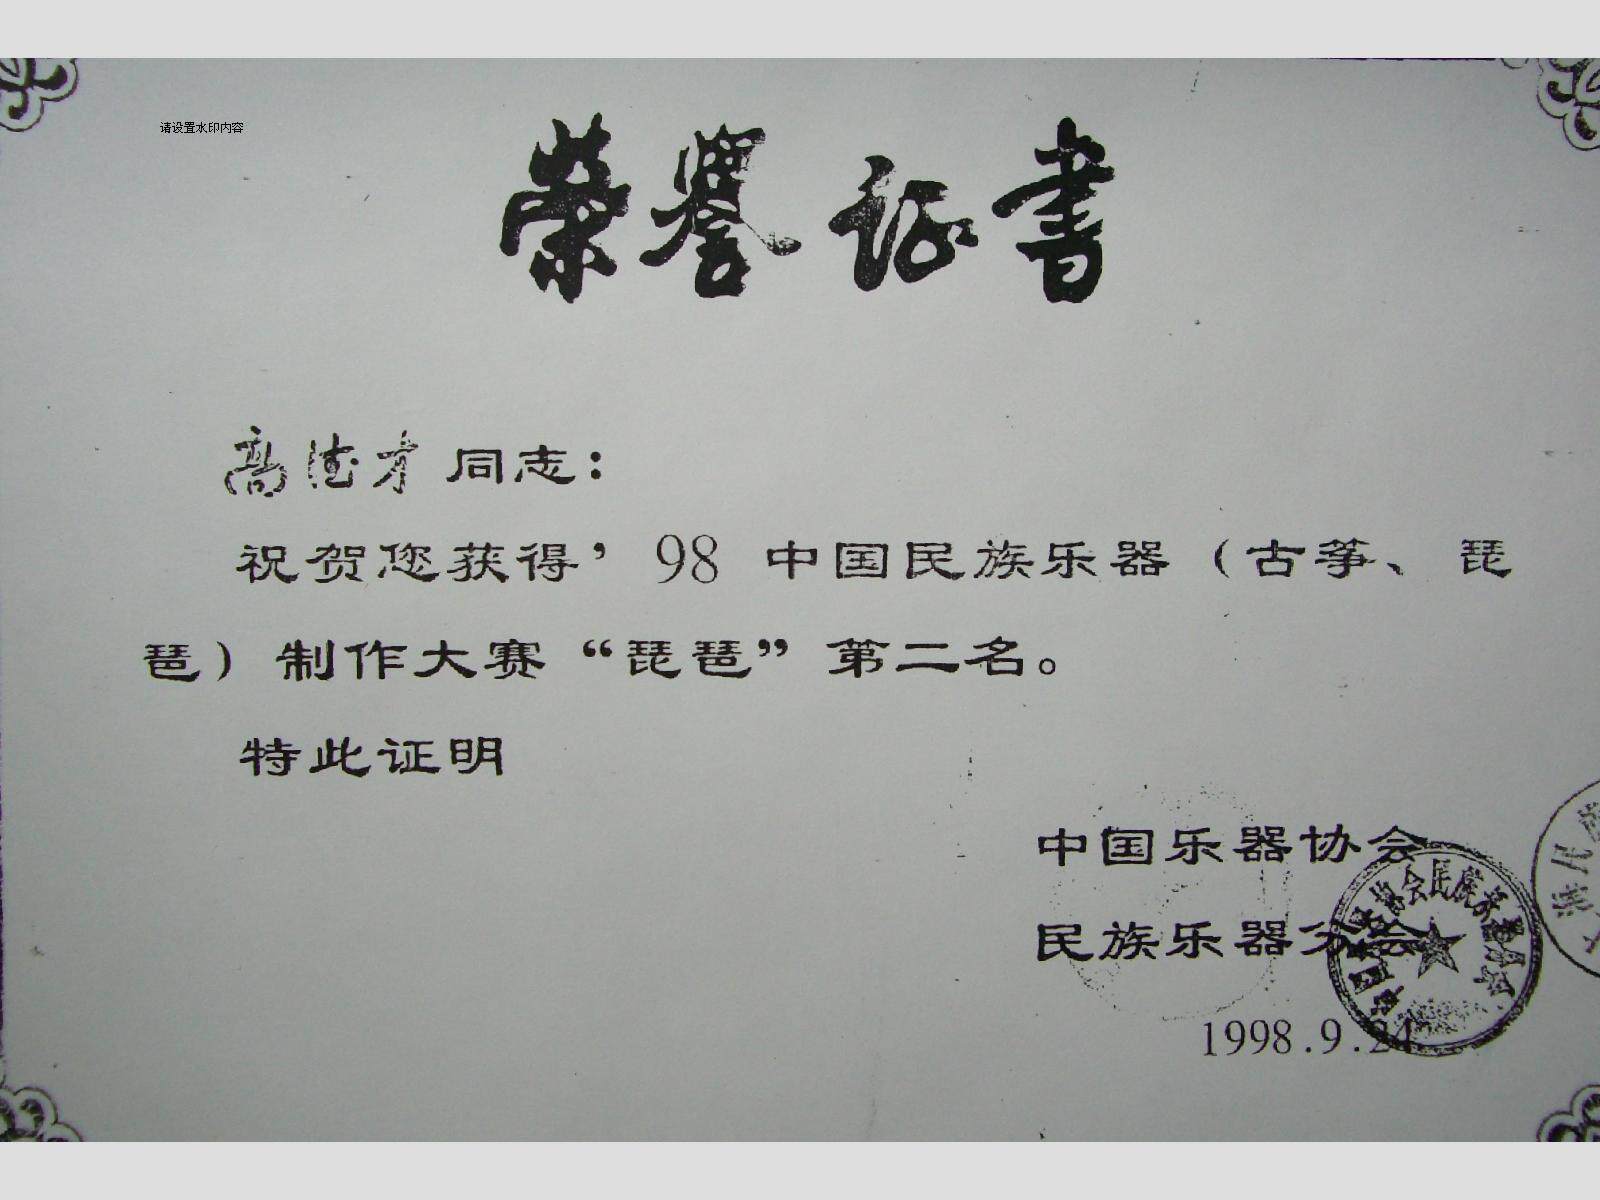 请设置水印内容
荣誉证书
高德才同志：
祝贺您获得’98 中国民族乐器（古筝、琵
琶）制作大赛“琵琶”第二名。
特此证明
中国乐器协会
民族乐器分会
1998.9.24